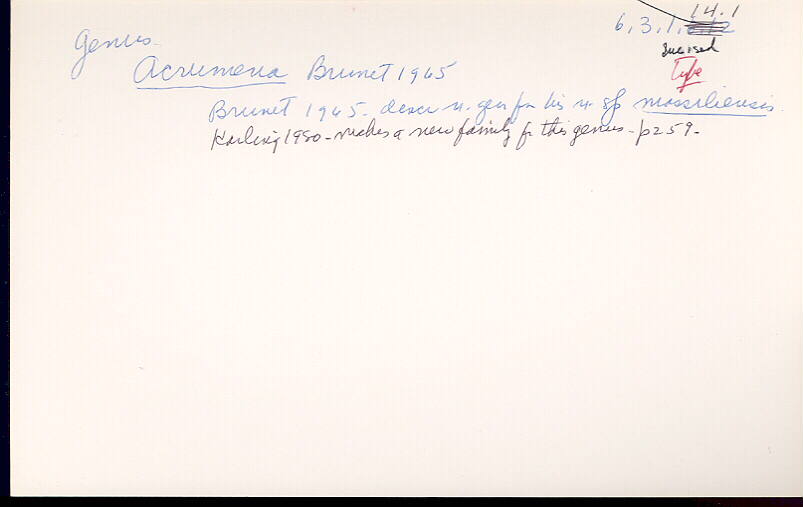 14.1
6, 3, 1, 
Revised
Type
Genus
Acrumena Brunet 1965
Brunet 1965 - descr n. gen for his n. sp massiliensis.
Karling 1980 - makes a new family for this genus - p259 -